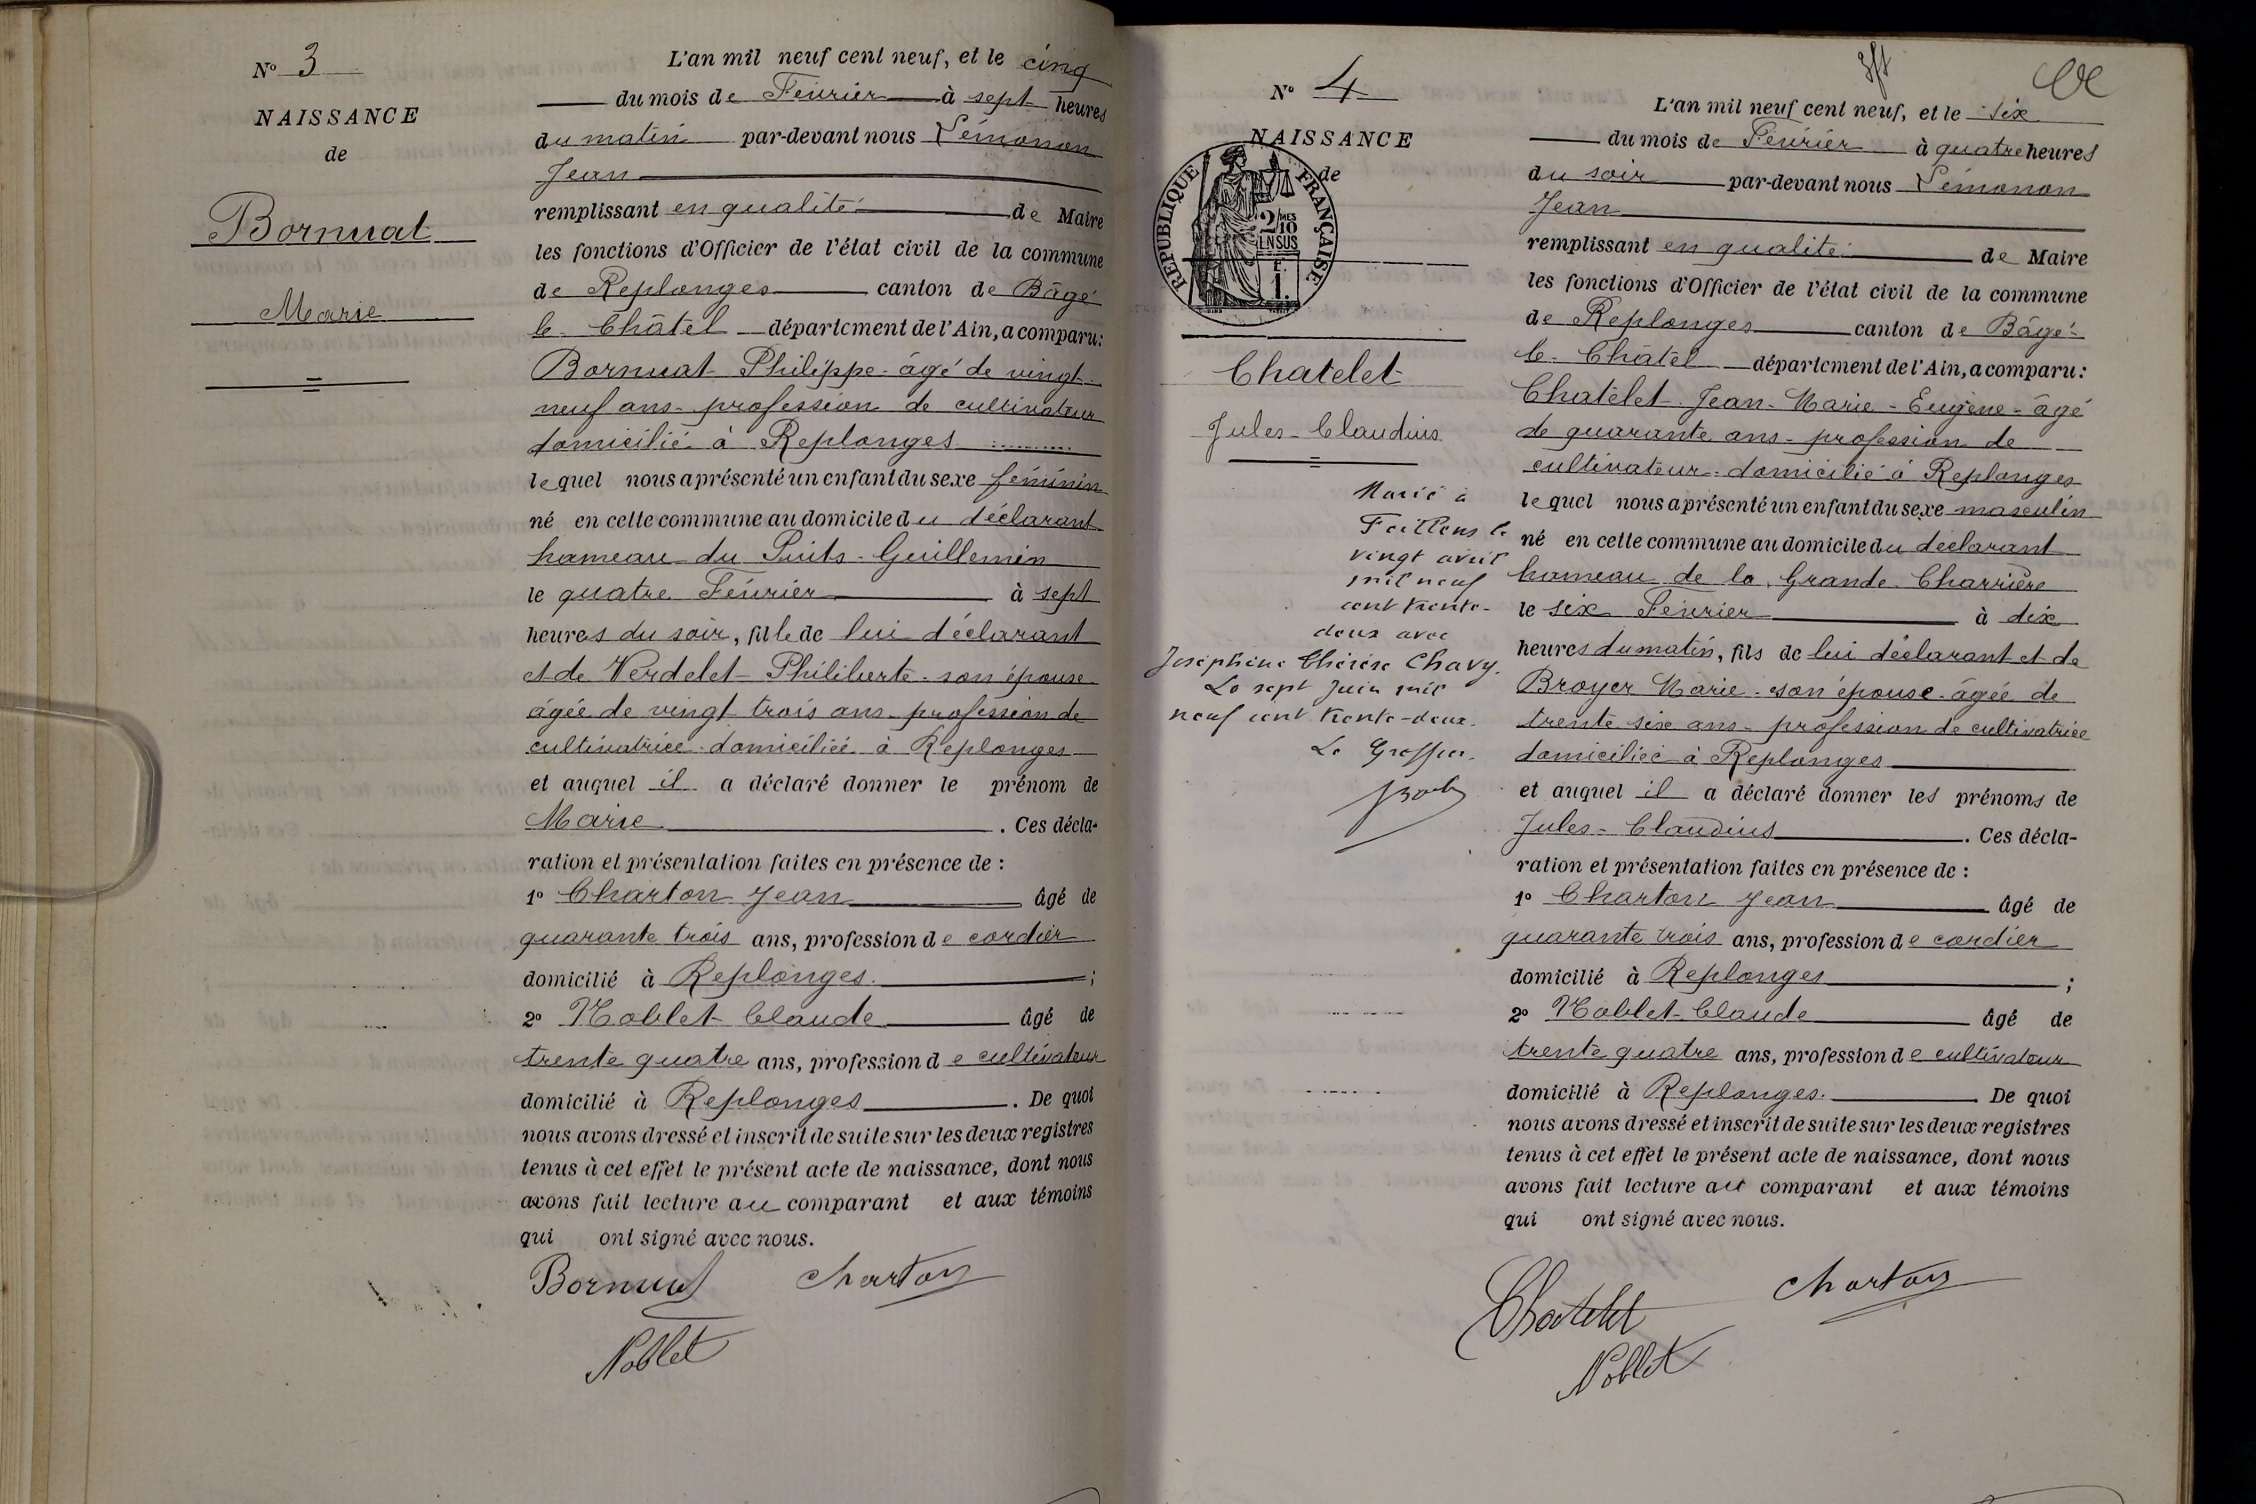 N° 3
NAISSANCE
de
Bornuat
Marie
L'an mil neuf cent neuf, et le cinq
du mois de Février à sept heures
du matin par-devant nous Lémonon
Jean
remplissant en qualité de Maire
les fonctions d'Officier de l'état civil de la commune
de Replonges canton de Bâgé
le Châtel département de l'Ain, a comparu:
Bornuat Philippe âgé de vingt
neuf ans - profession de cultivateur
domicilié à Replonges
lequel nous a présenté un enfant du sexe féminin
né en cette commune au domicile du déclarant
hameau du Puits-Guillemin
le quatre Février à sept
heures du soir, fille de lui déclarant
et de Verdelet Philiberte son épouse
âgée de vingt trois ans profession de
cultivatrice domiciliée à Replonges
et auquel il a déclaré donner le prénom de
Marie. Ces décla-
ration et présentation faites en présence de :
1° Charton Jean âgé de
quarante trois ans, profession de cordier
domicilié à Replonges ;
2° Noblet Claude âgé de
trente quatre ans, profession de cultivateur
domicilié à Replonges. De quoi
nous avons dressé et inscrit de suite sur les deux registres
tenus à cet effet le présent acte de naissance, dont nous
avons fait lecture au comparant et aux témoins
qui ont signé avec nous.
Bornuat Charton
Noblet
N° 4
NAISSANCE
de
RÉPUBLIQUE FRANÇAISE
2/10 MES
EN SUS
F.
1.
Chatelet
Jules-Claudius
Marié à
Feillens le
vingt avril
mil neuf
cent trente-
deux avec
Joséphine Thérèse Chavy.
Le sept Juin mil
neuf cent trente-deux.
Le Greffier.
L'an mil neuf cent neuf, et le six
du mois de Février à quatre heures
du soir par-devant nous Lémonon
Jean
remplissant en qualité de Maire
les fonctions d'Officier de l'état civil de la commune
de Replonges canton de Bâgé-
le-Châtel département de l'Ain, a comparu:
Chatelet Jean-Marie-Eugène-âgé
de quarante ans - profession de
cultivateur domicilié à Replonges
lequel nous a présenté un enfant du sexe masculin
né en cette commune au domicile du déclarant
hameau de la Grande Charrière
le six Février à dix
heures du matin, fils de lui déclarant et de
Broyer Marie son épouse âgée de
trente six ans - profession de cultivatrice
domiciliée à Replonges
et auquel il a déclaré donner les prénoms de
Jules-Claudius. Ces décla-
ration et présentation faites en présence de :
1° Charton Jean âgé de
quarante trois ans, profession de cordier
domicilié à Replonges ;
2° Noblet Claude âgé de
trente quatre ans, profession de cultivateur
domicilié à Replonges. De quoi
nous avons dressé et inscrit de suite sur les deux registres
tenus à cet effet le présent acte de naissance, dont nous
avons fait lecture au comparant et aux témoins
qui ont signé avec nous.
Chatelet Charton
Noblet